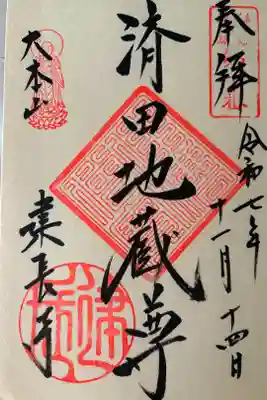 奉拝
令和七年
十一月
十四日
済田地蔵尊
大本山
建長寺